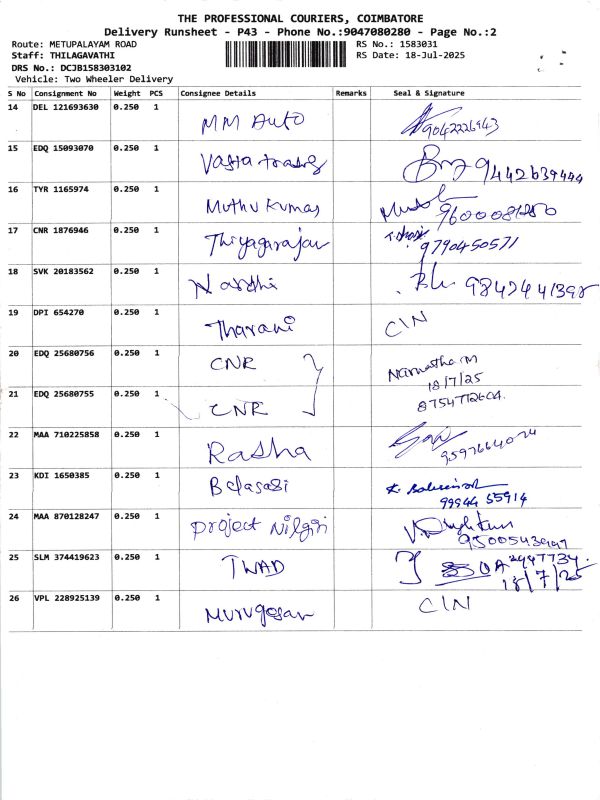 THE PROFESSIONAL COURIERS, COIMBATORE
Delivery Runsheet - P43 - Phone No.:9047080280 - Page No.:2
Route: METUPALAYAM ROAD RS No.: 1583031
Staff: THILAGAVATHI RS Date: 18-Jul-2025
DRS No.: DCJB158303102
Vehicle: Two Wheeler Delivery
S No Consignment No Weight PCS Consignee Details Remarks Seal & Signature
14 DEL 121693630 0.250 1 MM Auto 9042226943
15 EDQ 15093070 0.250 1 9442639444
16 TYR 1165974 0.250 1 Muthu Kumar
17 CNR 1876946 0.250 1 Thiyagarajan 9790450571
18 SVK 20183562 0.250 1 Nandhi
19 DPI 654270 0.250 1 Tharani CIN
20 EDQ 25680756 0.250 1 CNR Narmatha M
18/7/25
21 EDQ 25680755 0.250 1 CNR
22 MAA 710225858 0.250 1 Rasha
23 KDI 1650385 0.250 1
99944 55914
24 MAA 870128247 0.250 1 Project Nilgiri
25 SLM 374419623 0.250 1 TWAD
18/7/25
26 VPL 228925139 0.250 1 Murugesan CIN